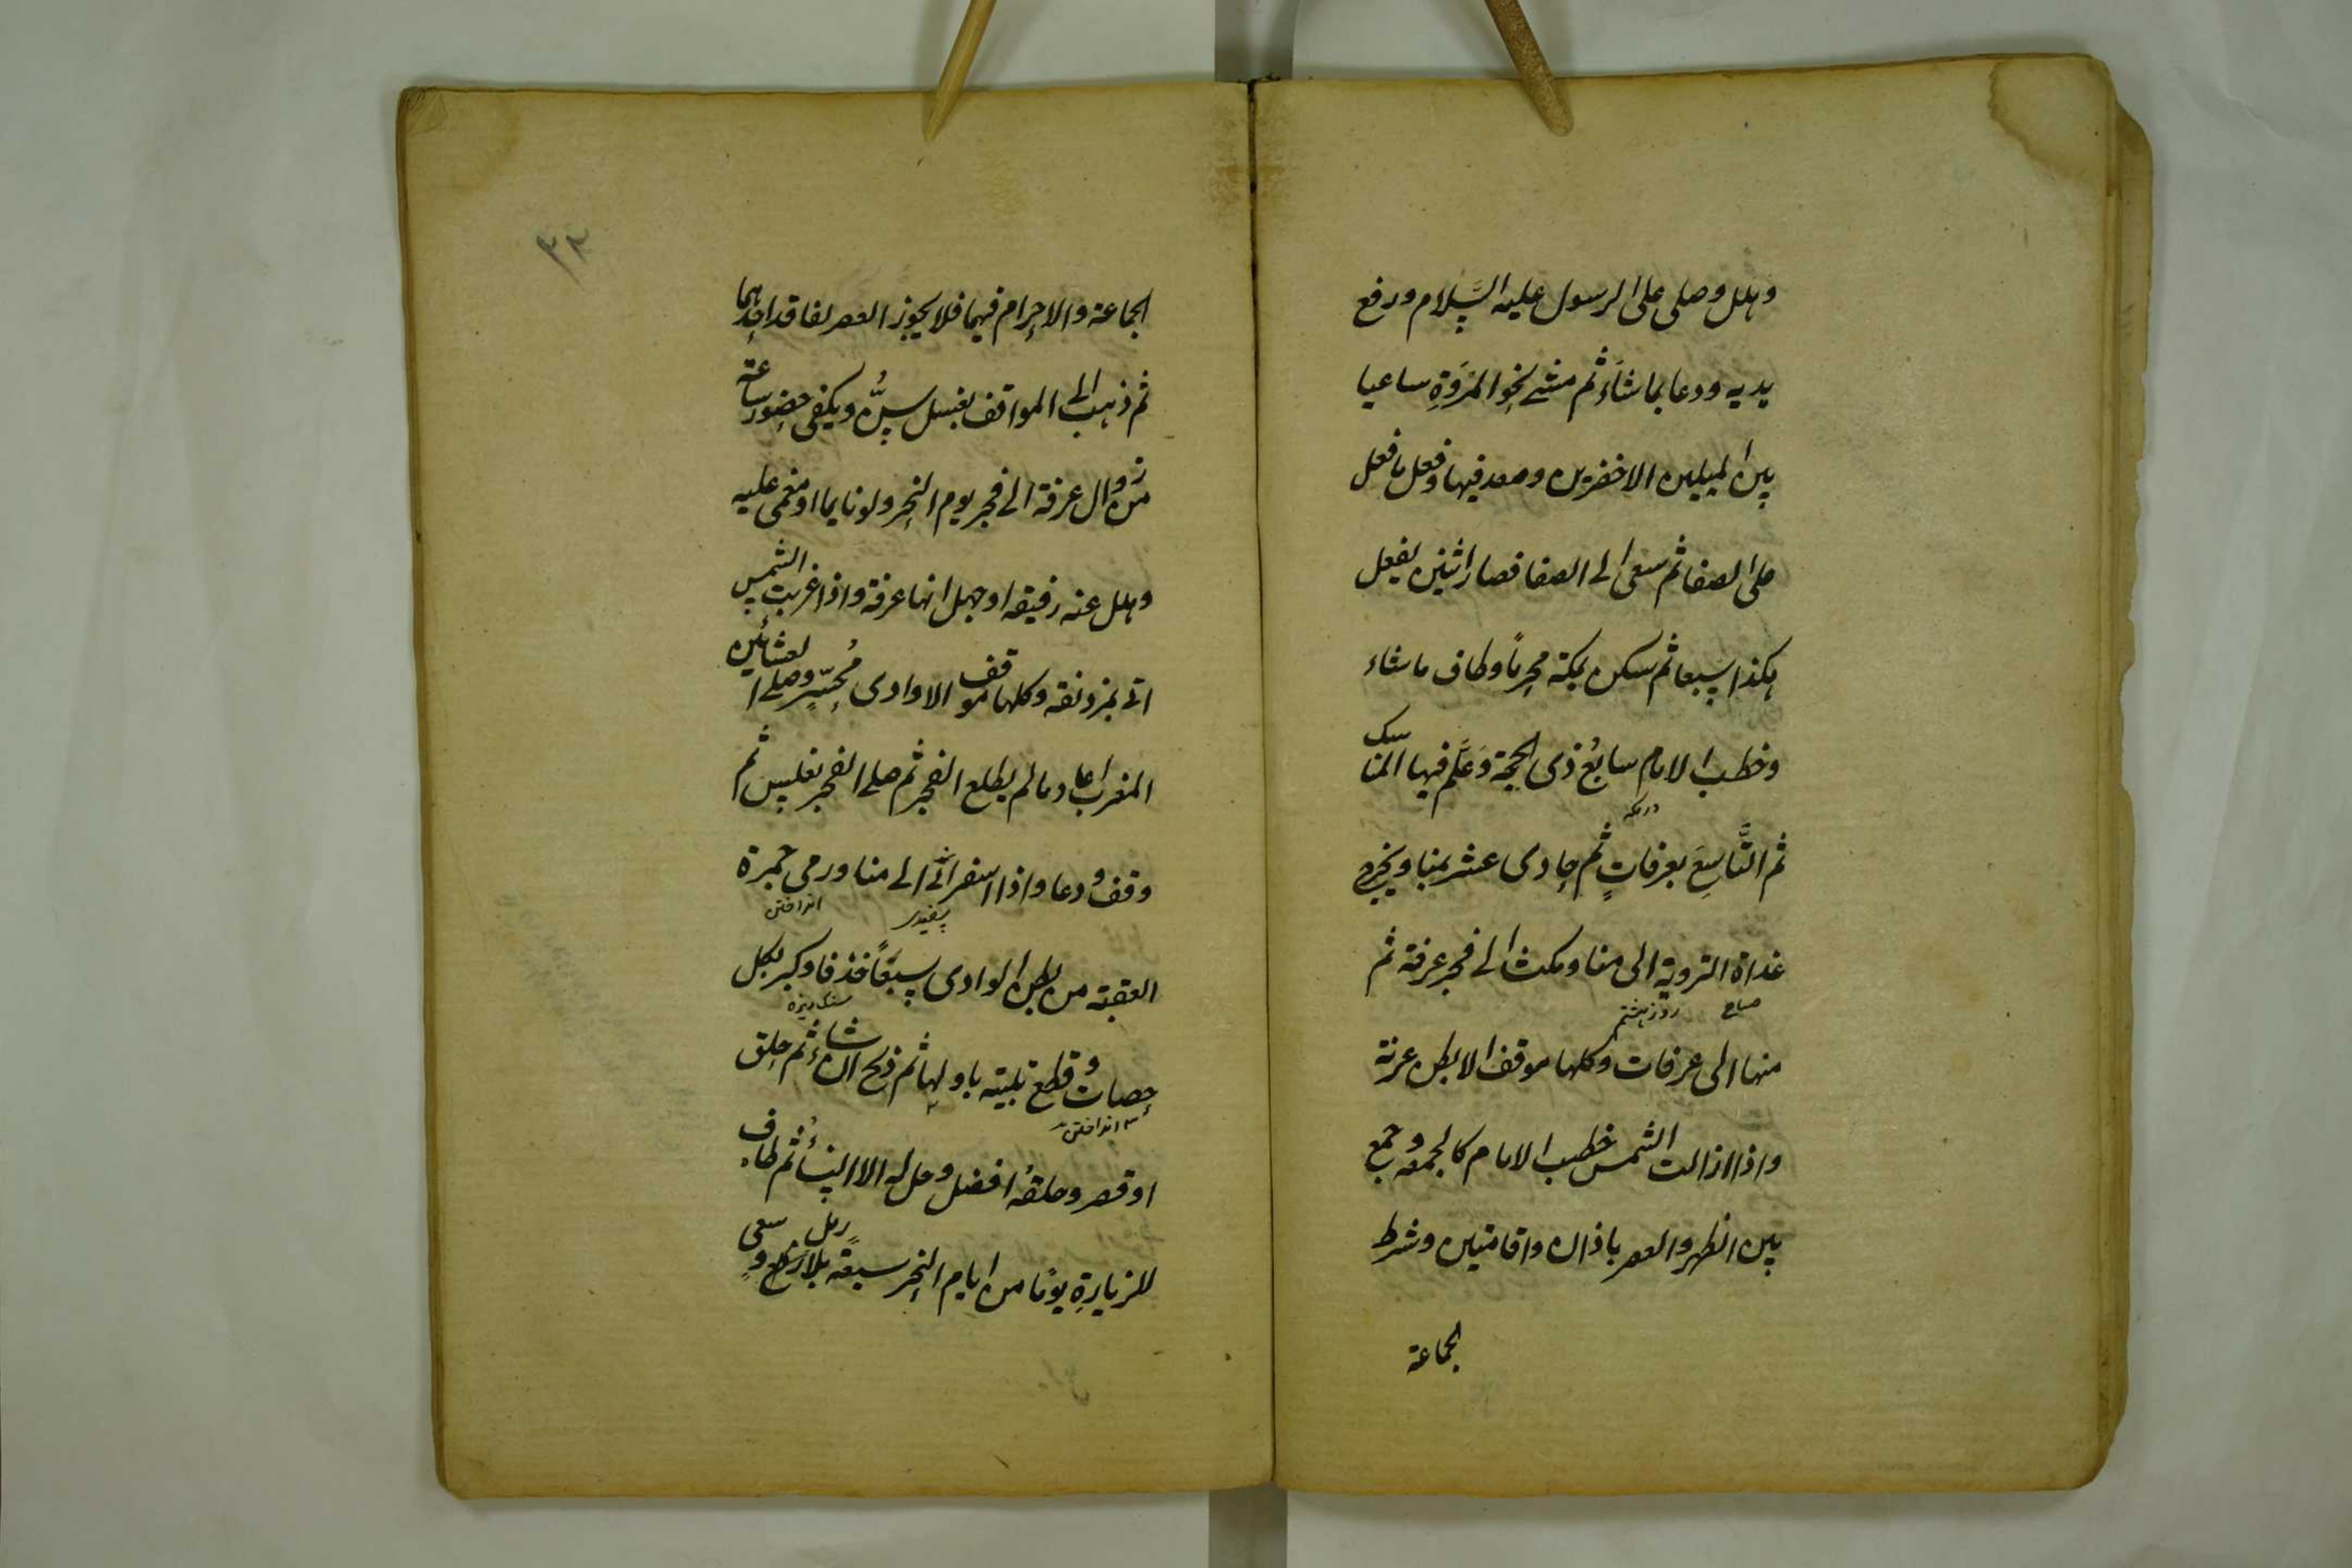 وهلل وصلى على الرسول عليه السَّلام ورفع
يديه ودعا بما شاءَ ثم مشے نحو المَرْوَةِ ساعيا
بين الميلين الاخضرين وصعد فيها وفعل ما فعل
على الصفا ثم سعى الے الصفا فصار اثنين يفعل
هكذا سبعا ثم سكن بمكة محرماً وطاف ما شاء
وخطب الامام سابعُ ذى الحجة وَعَلَّم فيها المناسك
در مكه
ثم التَّاسِعَ بعرفاتٍ ثم حادى عشر بمنا ويخرج
غداة التروية الى منا ومكث الے فجر عرفة ثم
صباح روز هشتم
منها الى عرفات وكلها موقف الا بطن عرنة
واذا ازالت الشمس خطب الامام كالجمعه وجمع
بين الظهر والعصر باذان واقامتين وشرط
الجماعة
الجماعة والاحرام فيهما فلا يجوز العصر لفاقد احدهما
ثم ذهب الى المواقف بغسل سُنَّ ويكفى حضور ساعة
من زوال عرفة الے فجر يوم النحر ولو نايما او مغمى عليه
وهلل عنه رفيقه او جهل انها عرفة واذا غربت الشمس
اتے بمزدلفه وكلها موقف الا وادى مُحَسِّرٍ وصلے العشائين
المغرب اعاد ما لم يطلع الفجر ثم صلے الفجر بغلس ثم
وقف ودعا واذا اسفر اتے الے منا ورمى جمرة
سفيدى انداختن
العقبة من بطن الوادى سبعًا خذفا وكبر بكل
سنك ريزه
حصات وقطع تلبيته باولها ثم ذبح ان شاء ثم حلق
انداختن
او قصر وحلقهُ افضل وحل له الا النساءُ ثم طاف
للزيارةِ يومًا من ايام النحر سبعة بلا رمل وسعى